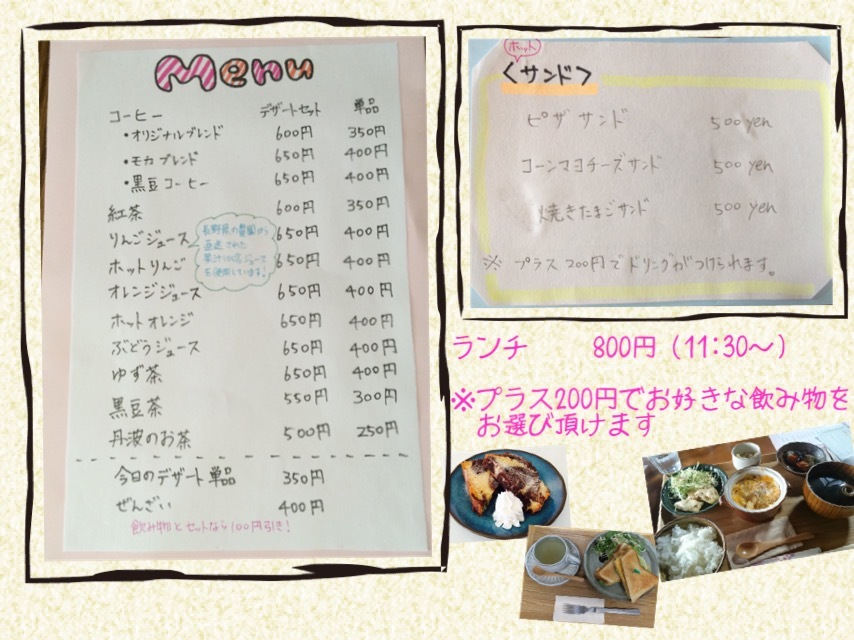 Menu
コーヒー デザートセット 単品
・オリジナルブレンド 600円 350円
・モカブレンド 650円 400円
・黒豆コーヒー 650円 400円
紅茶 600円 350円
りんごジュース 650円 400円
長野県の農園から
直送された
果汁100%ジュース
を使用しています!
ホットりんご 650円 400円
オレンジジュース 650円 400円
ホットオレンジ 650円 400円
ぶどうジュース 650円 400円
ゆず茶 650円 400円
黒豆茶 550円 300円
丹波のお茶 500円 250円
今日のデザート単品 350円
ぜんざい 400円
飲み物とセットなら100円引き!
ホット
<サンド>
ピザサンド 500yen
コーンマヨチーズサンド 500yen
焼きたまごサンド 500yen
※ プラス200円でドリンクがつけられます。
ランチ 800円(11:30～)
※プラス200円でお好きな飲み物を
お選び頂けます